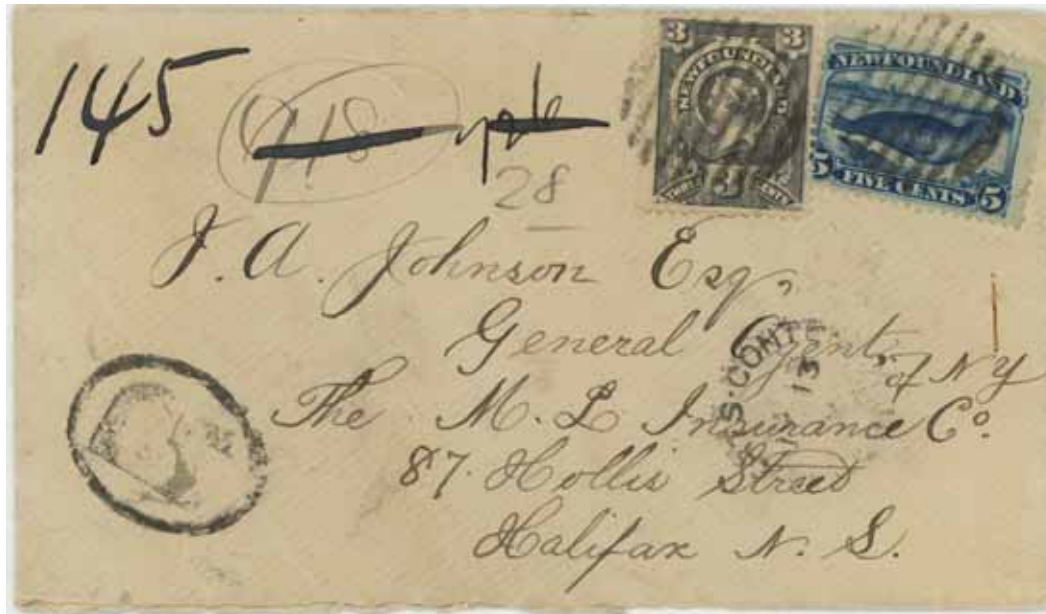 145
118
28
3 3
NEWFOUNDLAND
THREE 3 CENTS
NEWFOUNDLAND
5 FIVE CENTS 5
J. A. Johnson Esq,
General Agent, of NY
The M. L Insurance Co.
87. Hollis Street
Halifax N. S.
13